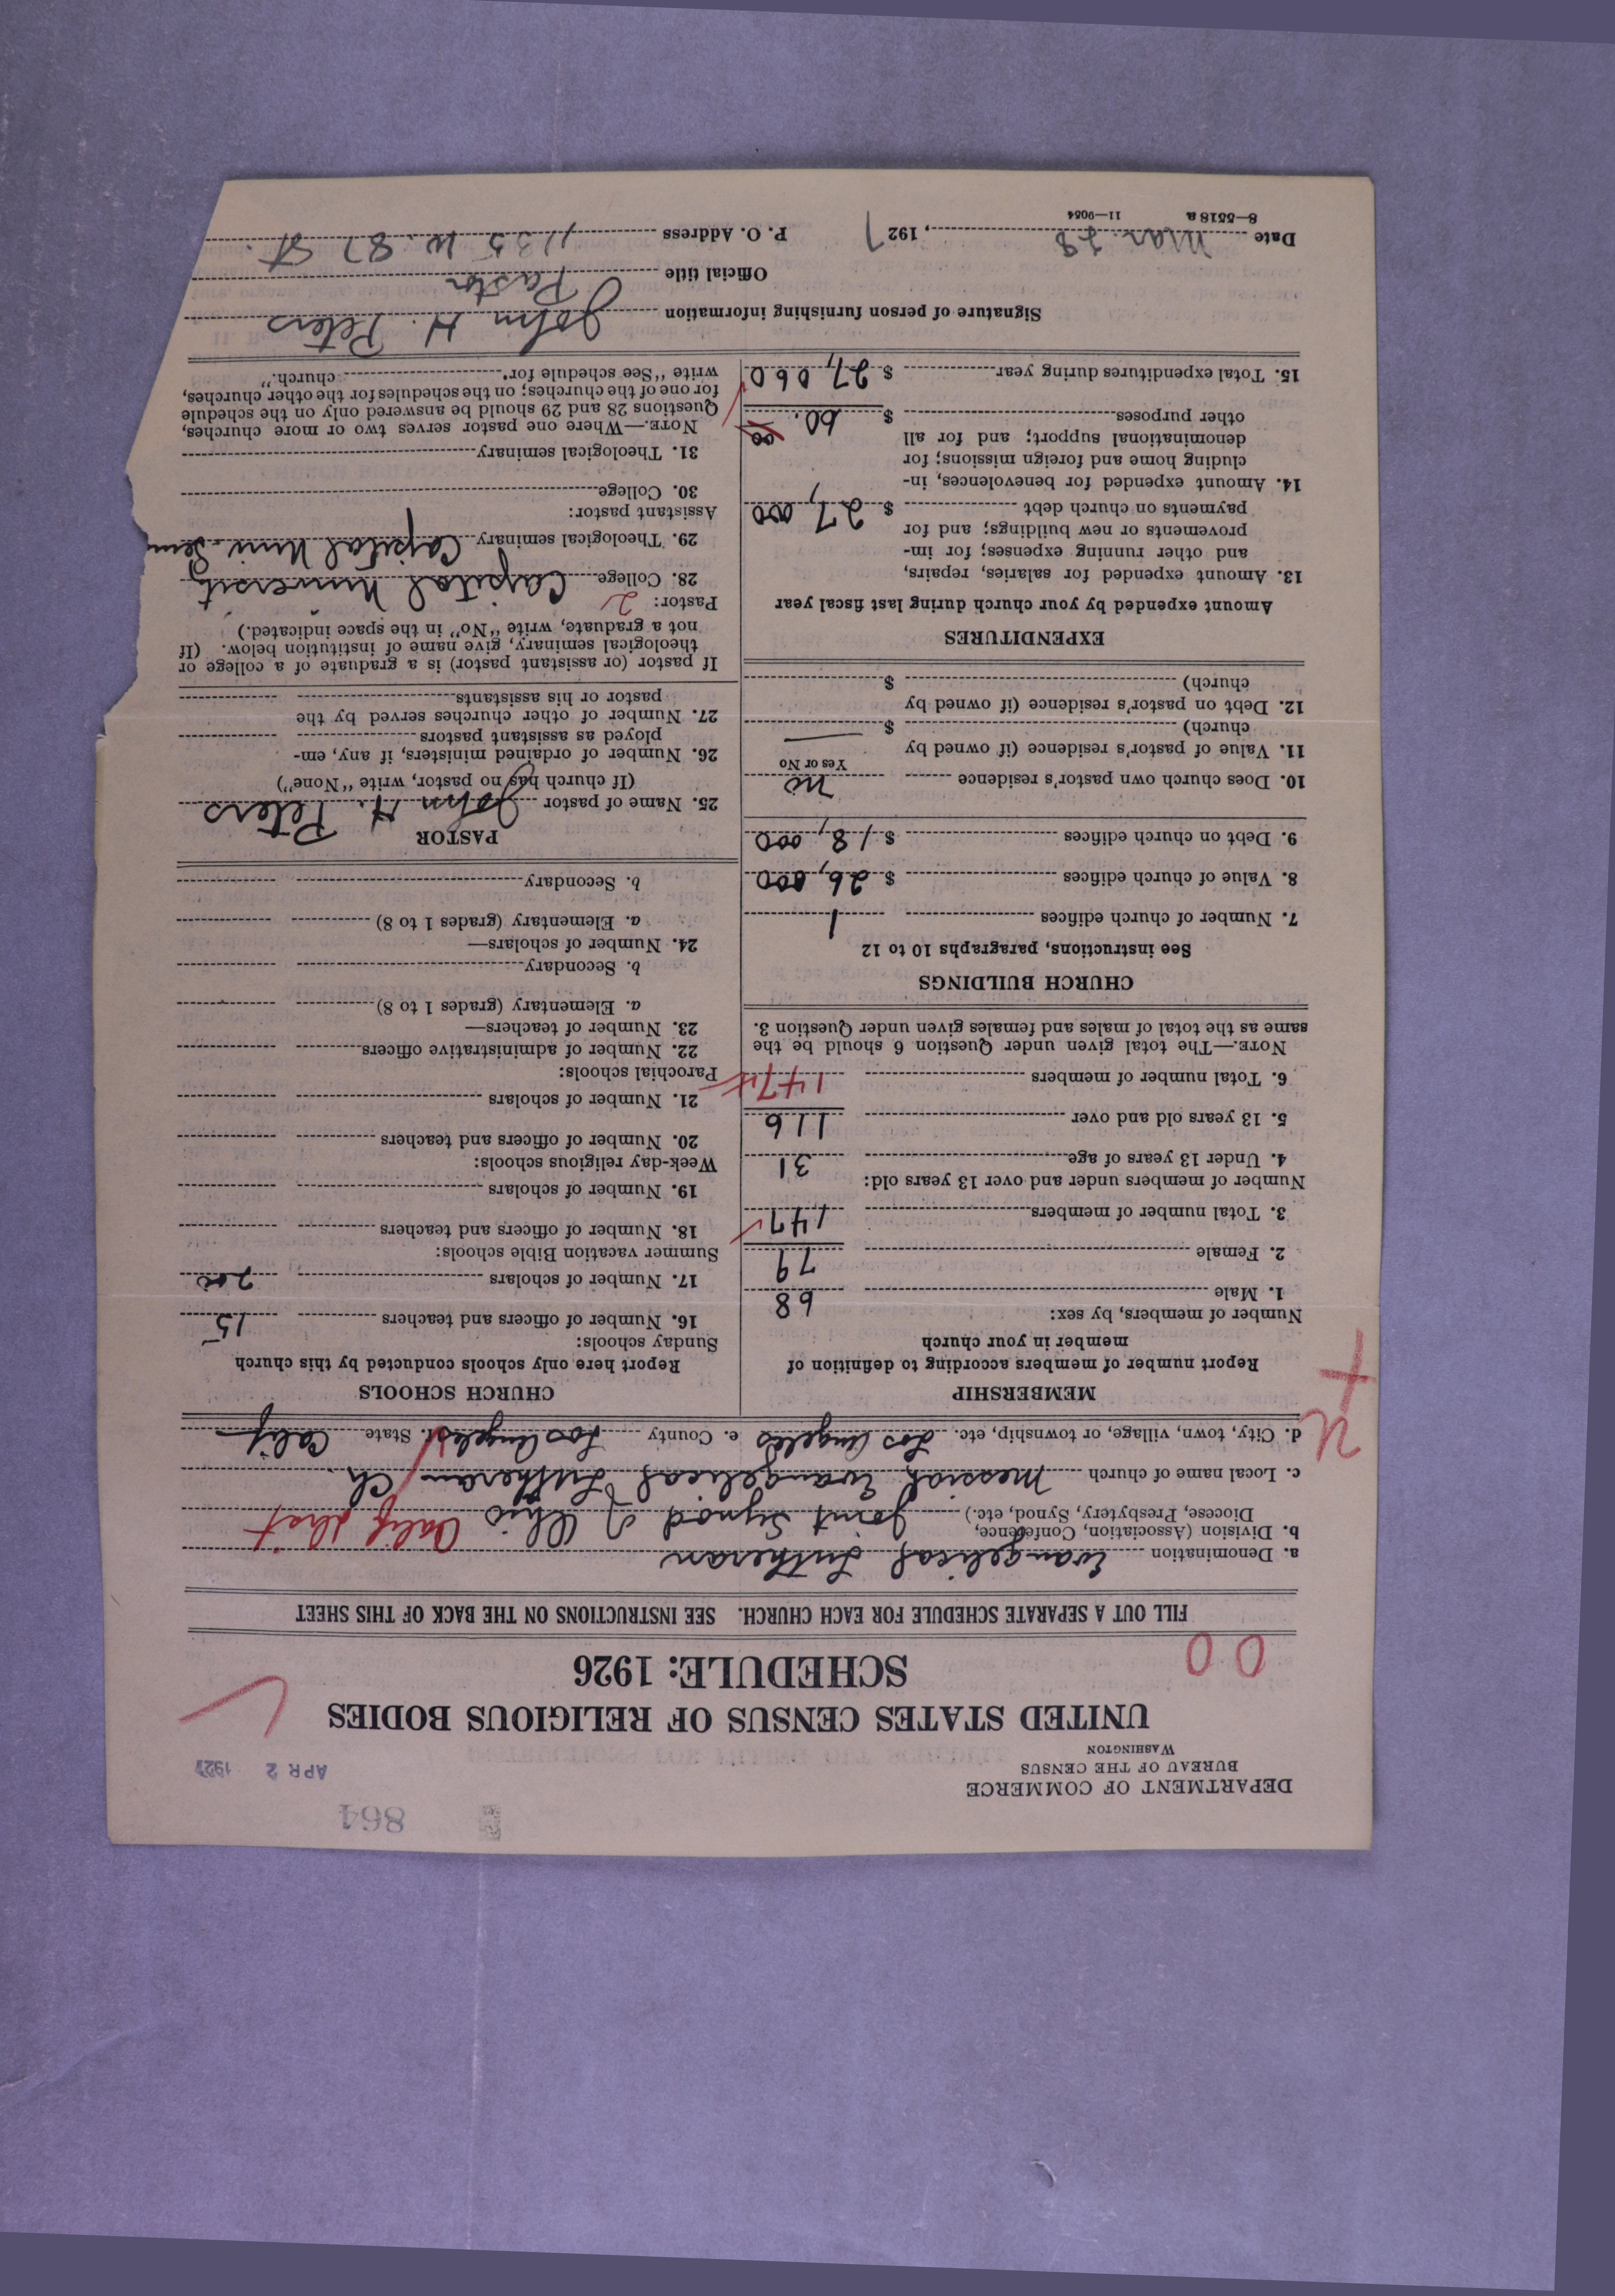 864
DEPARTMENT OF COMMERCE
BUREAU OF THE CENSUS
WASHINGTON
APR 2 1927
UNITED STATES CENSUS OF RELIGIOUS BODIES
SCHEDULE: 1926
00
FILL OUT A SEPARATE SCHEDULE FOR EACH CHURCH. SEE INSTRUCTIONS ON THE BACK OF THIS SHEET
a. Denomination Evangelical Lutheran
b. Division (Association, Conference,
Diocese, Presbytery, Synod, etc.) Joint Synod of Ohio Calif Dist
c. Local name of church Messiah Evangelical Lutheran Ch.
d. City, town, village, or township, etc. Los Angeles e. County Los Angeles f. State Calif
MEMBERSHIP
Report number of members according to definition of
member in your church
Number of members, by sex:
1. Male 68
2. Female 79
3. Total number of members 147
Number of members under and over 13 years old:
4. Under 13 years of age 31
5. 13 years old and over 116
6. Total number of members 147
NOTE.—The total given under Question 6 should be the
same as the total of males and females given under Question 3.
CHURCH BUILDINGS
See instructions, paragraphs 10 to 12
7. Number of church edifices 1
8. Value of church edifices $ 26,000
9. Debt on church edifices $ 18,000
10. Does church own pastor's residence no
Yes or No
11. Value of pastor's residence (if owned by
church) $
12. Debt on pastor's residence (if owned by
church) $
EXPENDITURES
Amount expended by your church during last fiscal year
13. Amount expended for salaries, repairs,
and other running expenses; for im-
provements or new buildings; and for
payments on church debt $ 27,000
14. Amount expended for benevolences, in-
cluding home and foreign missions; for
denominational support; and for all
other purposes $ 60.00
15. Total expenditures during year $ 27,060
CHURCH SCHOOLS
Report here only schools conducted by this church
Sunday schools:
16. Number of officers and teachers 15
17. Number of scholars 200
Summer vacation Bible schools:
18. Number of officers and teachers
19. Number of scholars
Week-day religious schools:
20. Number of officers and teachers
21. Number of scholars
Parochial schools:
22. Number of administrative officers
23. Number of teachers—
a. Elementary (grades 1 to 8)
b. Secondary
24. Number of scholars—
a. Elementary (grades 1 to 8)
b. Secondary
PASTOR
25. Name of pastor John H. Peters
(If church has no pastor, write "None")
26. Number of ordained ministers, if any, em-
ployed as assistant pastors
27. Number of other churches served by the
pastor or his assistants
If pastor (or assistant pastor) is a graduate of a college or
theological seminary, give name of institution below. (If
not a graduate, write "No" in the space indicated.)
Pastor: 2
28. College Capital University
29. Theological seminary Capital Univ. Sem
Assistant pastor:
30. College
31. Theological seminary
NOTE.—Where one pastor serves two or more churches,
Questions 28 and 29 should be answered only on the schedule
for one of the churches; on the schedules for the other churches,
write "See schedule for church."
Signature of person furnishing information John H. Peters
Official title Pastor
Date Mar. 28, 1927 P. O. Address 1135 W. 87 St.
8—5518 a 11—9054